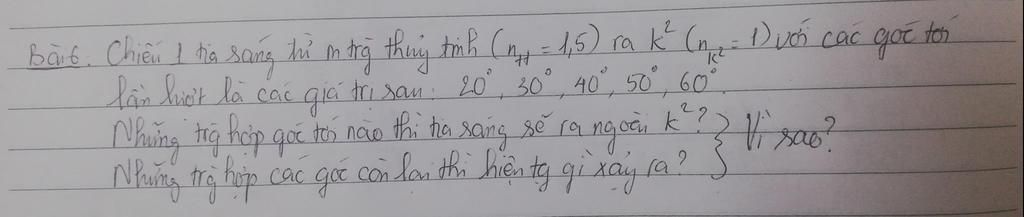 Bài 6. Chiếu 1 tia sáng từ m trg thủy tinh (n_tt = 1,5) ra k² (n_k² = 1) với các góc tới
lần lượt là các giá trị sau: 20°, 30°, 40°, 50°, 60°.
Những trg hợp góc tới nào thì tia sáng sẽ ra ngoài k²? } Vì sao?
Những trg hợp các góc còn lại thì hiện tg gì xảy ra?